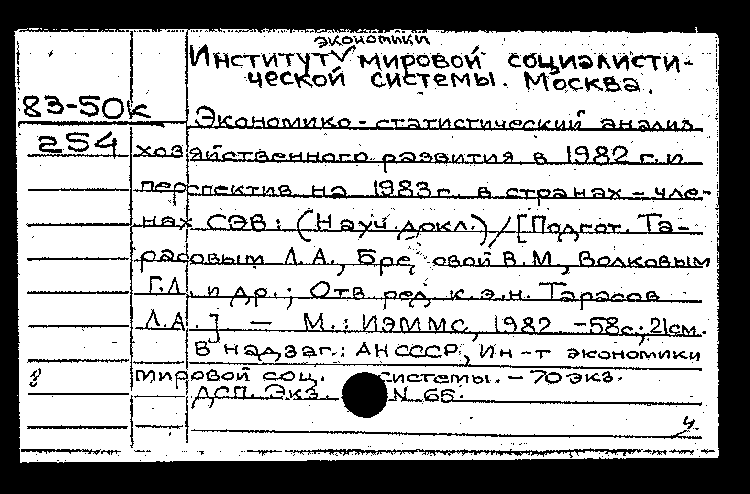 экономики
Институт мировой социалисти-
ческой системы. Москва.
83-50к
Экономико-статистический анализ
254 хозяйственного развития в 1982 г. и
перспектив на 1983 г. в странах-чле-
нах СЭВ: (Науч. докл.)/[Подгот. Та-
расовым Л.А., овой В.М., Волковым
Г.Л. и др.; Отв. ред. к.э.н. Тарасов
Л.А.] — М.: ИЭММС, 1982. -58с.; 21см.
В надзаг.: АН СССР, Ин-т экономики
мировой соц. системы. - 70 экз.
ДСП. Экз. N 66.